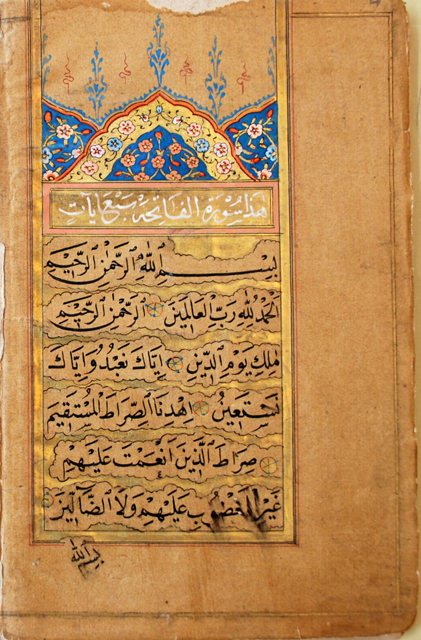 هذا سورة الفاتحه سبع ايات
بِسْمِ اللّٰهِ الرَّحْمٰنِ الرَّحٖيمِ
اَلْحَمْدُ لِلّٰهِ رَبِّ الْعَالَمٖينَ الرَّحْمٰنِ الرَّحٖيمِ
مٰلِكِ يَوْمِ الدّٖينِ اِيَّاكَ نَعْبُدُ وَاِيَّاكَ
نَسْتَعٖينُ اِهْدِنَا الصِّرَاطَ الْمُسْتَقٖيمَ
صِرَاطَ الَّذٖينَ اَنْعَمْتَ عَلَيْهِمْ
غَيْرِ الْمَغْضُوبِ عَلَيْهِمْ وَلَا الضَّٓالّٖينَ